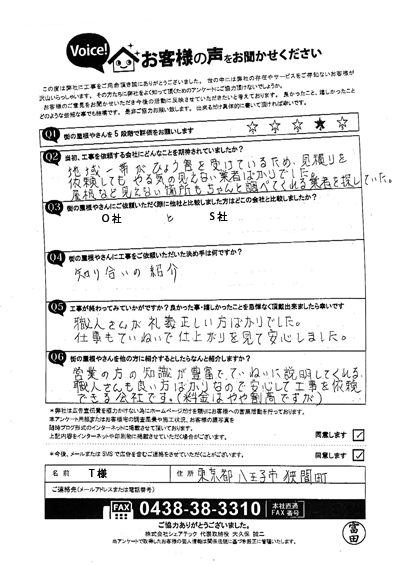 Voice!
お客様の声をお聞かせください
この度は弊社に工事をご用命頂き誠にありがとうございました。世の中には弊社の存在やサービスをご存知ないお客様が
沢山いらっしゃいます。その方たちに弊社をよく知って頂くためのアンケートにご協力頂けないでしょうか。
お客様のご意見をお聞かせいただき今後の活動に反映させていただきたいと考えております。良かったこと、嬉しかったこと
どのような些細な事でも結構です。是非ご協力お願い致します。出来るだけ具体的に書いて頂ければ幸いです。
Q1 街の屋根やさんを5段階で評価をお願いします ☆ ☆ ☆ ★ ☆
Q2 当初、工事を依頼する会社にどんなことを期待されていましたか?
地域一帯がひょう害を受けているため、見積りを
依頼してもやる気の見えない業者ばかりでした。
屋根など見えない箇所もちゃんと調べてくれる業者を探していた。
Q3 街の屋根やさんにご依頼いただく際に他社と比較しました方はどこの会社と比較しましたか?
O社 と S社
Q4 街の屋根やさんに工事をご依頼いただいた決め手は何ですか?
知り合いの紹介
Q5 工事が終わってみていかがですか?良かった事・嬉しかったことを忌憚なく頂戴出来ましたら幸いです
職人さんが礼義正しい方ばかりでした。
仕事もていねいで仕上がりを見て安心しました。
Q6 街の屋根やさんを他の方に紹介するとしたらなんと紹介しますか?
営業の方の知識が豊富で、ていねいに説明してくれる。
職人さんも良い方ばかりなので安心して工事を依頼
できる会社です。(料金はやや割高ですが)
*弊社は広告宣伝費を極力かけない為にホームページだけを頼りにお客様への営業活動を行っております。
本アンケート用紙またはお客様宅の調査風景や施工状況、お客様の顔写真を
随時ブログ形式のインターネットに掲載させて頂いております。
上記内容をインターネットや印刷物に掲載させていただく場合がございます。 同意します ✓
*今後、メールまたはSMSで広告を含むご連絡をさせていただくことがございます。 同意します ✓
名前 T様 住所 東京都八王子市狭間町
ご連絡先(メールアドレスまたは電話番号)
FAX 0438-38-3310 本社直通 FAX番号
ご協力ありがとうございました。
株式会社シェアテック 代表取締役 大久保 誠二
当アンケートで取得したお客様の個人情報は関係法規に基づき厳正に管理いたします。
富田